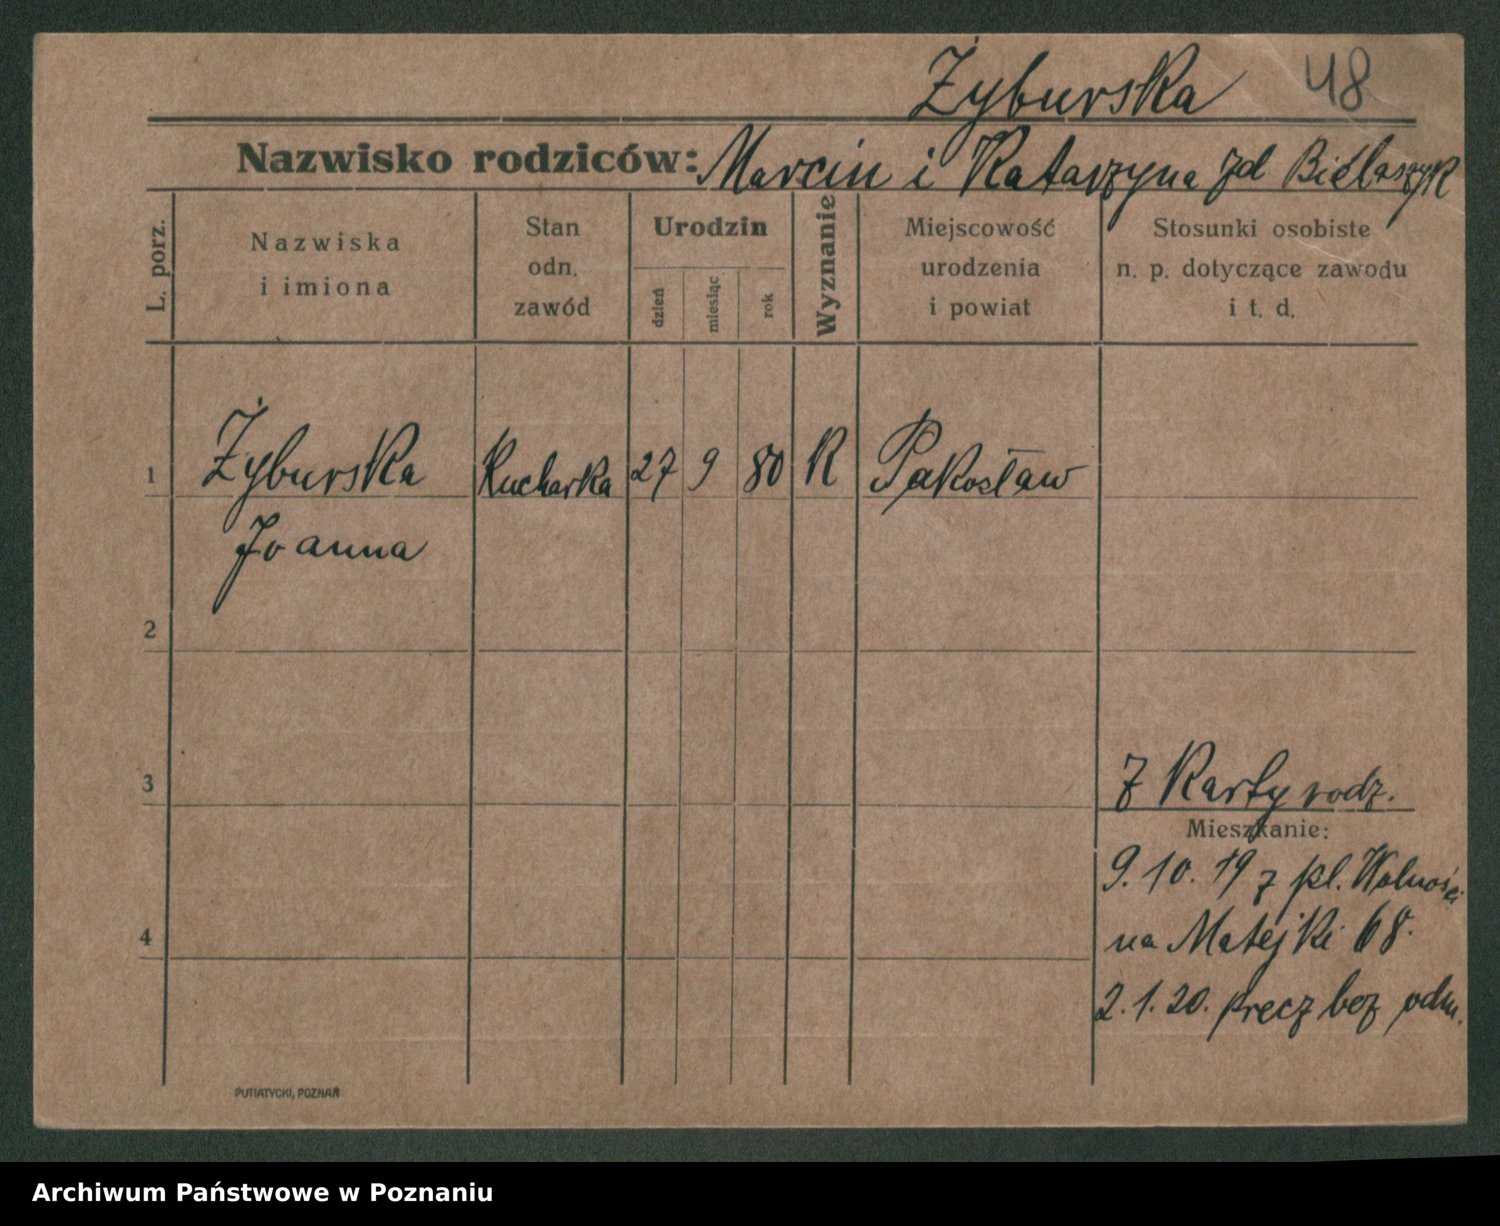 Żyburska 48
Nazwisko rodziców: Marcin i Katarzyna zd Bielaszyk
L. porz.
Nazwiska
i imiona
Stan
odn.
zawód
Urodzin
dzień
miesiąc
rok
Wyznanie
Miejscowość
urodzenia
i powiat
Stosunki osobiste
n. p. dotyczące zawodu
i t. d.
1 Żyburska Kucharka 27 9 80 R Pakosław
Joanna
2
3
Z Karty rodz.
Mieszkanie:
9. 10. 19 z pl. Wolności
4
na Matejki 68.
2. 1. 20. precz bez odm.
PUTIATYCKI, POZNAŃ
Archiwum Państwowe w Poznaniu